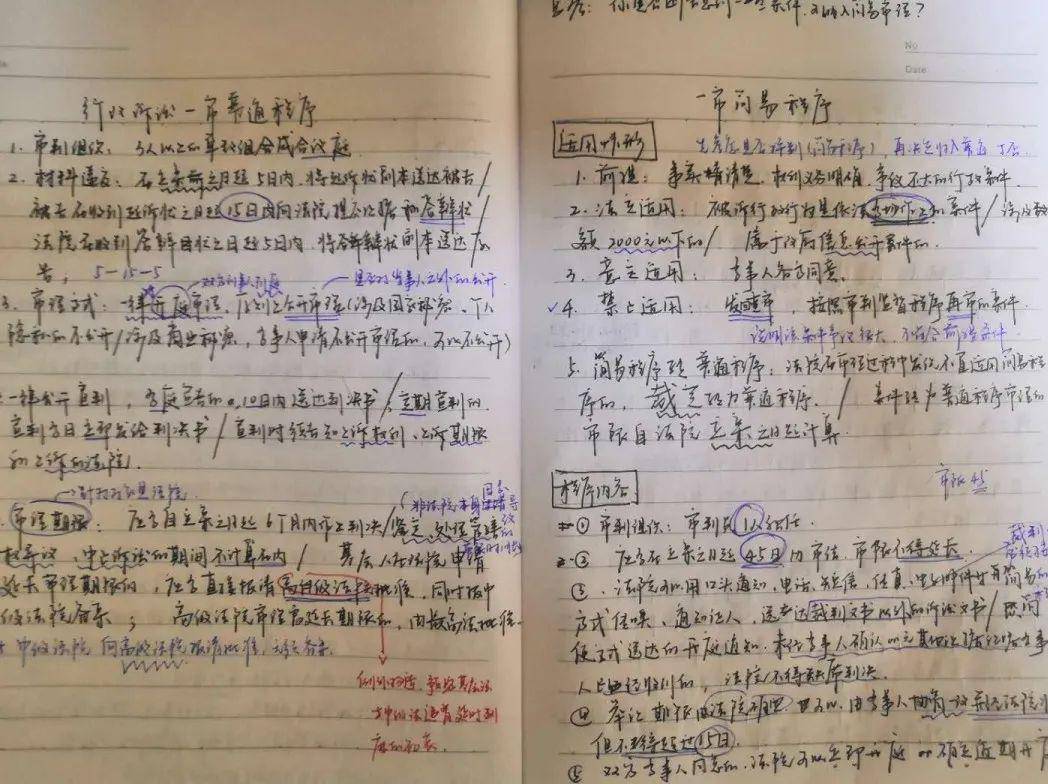 行政诉讼一审普通程序
1. 审判组织：3人以上的单数组合成合议庭
2. 材料送达：在立案之日起5日内，将起诉状副本送达被告/
被告在收到起诉状之日起15日内向法院提交证据和答辩状/
法院在收到答辩状之日起5日内，将答辩状副本送达原
告，5-15-5
3. 审理方式：一律开庭审理，原则上公开审理（涉及国家秘密、个人
隐私的不公开/涉及商业秘密，当事人申请不公开审理的，可以不公开）
一律公开宣判，当庭宣告的，10日内送达判决书/定期宣判的
宣判当日立即发给判决书/宣判时须告知上诉权利、上诉期限
和上诉的法院．
审理期限：应当自立案之日起6个月内作出判决/鉴定、处理管辖
权异议、中止诉讼的期间不计算在内/基层人民法院申请
延长审理期限的，应当直接报请高级法院批准，同时报中
级法院备案；高级法院审理需延长期限的，由最高法批准．
中级法院 向高级法院报请批准，无须备案．
No
Date
一审简易程序
适用情形
1. 前提：事实清楚、权利义务明确、争议不大的行政案件．
2. 法定适用：被诉行政行为是依法当场作出的案件/涉及款
额2000元以下的/属于政府信息公开案件的．
3. 意定适用：当事人各方同意．
4. 禁止适用：发回重审、按照审判监督程序再审的案件
5. 简易程序转普通程序：法院在审理过程中发现不宜适用简易程
序的，裁定转为普通程序．/案件转为普通程序审理的
审限自法院立案之日起计算．
程序内容
审限45
① 审判组织：审判员1人独任
② 应当在立案之日起45日内审结，审限不得延长
③ 法院可以用口头通知、电话、短信、传真、电子邮件等简易的
方式传唤、通知证人、送达裁判文书以外的诉讼文书/以简
便方式送达的开庭通知，未经当事人确认或无其他证据证明当事
人已经收到的，法院不得缺席判决．
④ 举证期限由法院确定，也可以由当事人协商一致并经法院准
但不得超过15日．
⑤ 双方当事人同意的，法院可以立即开庭 or 确定近期开庭